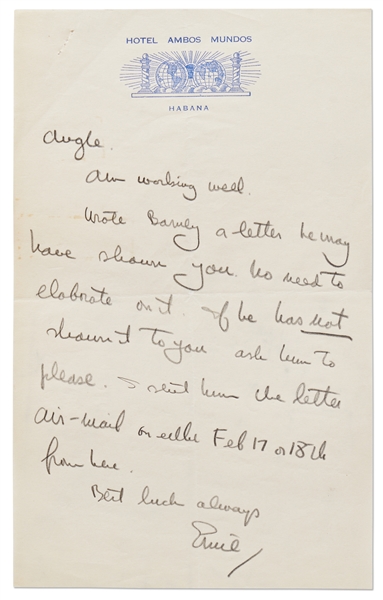 HOTEL AMBOS MUNDOS
HABANA
Am working well.
Wrote Barney a letter he may
have shown you. No need to
elaborate on it. If he has not
shown it to you ask him to
please. I sent him the letter
air-mail on either Feb 17 or 18th
from here.
Best luck always
Ernie